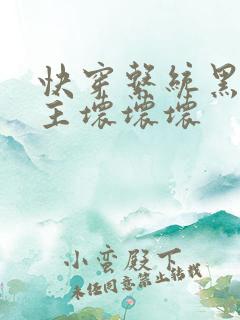 快穿系统黑
主坏坏坏
小蛮殿下
未经同意禁止转载